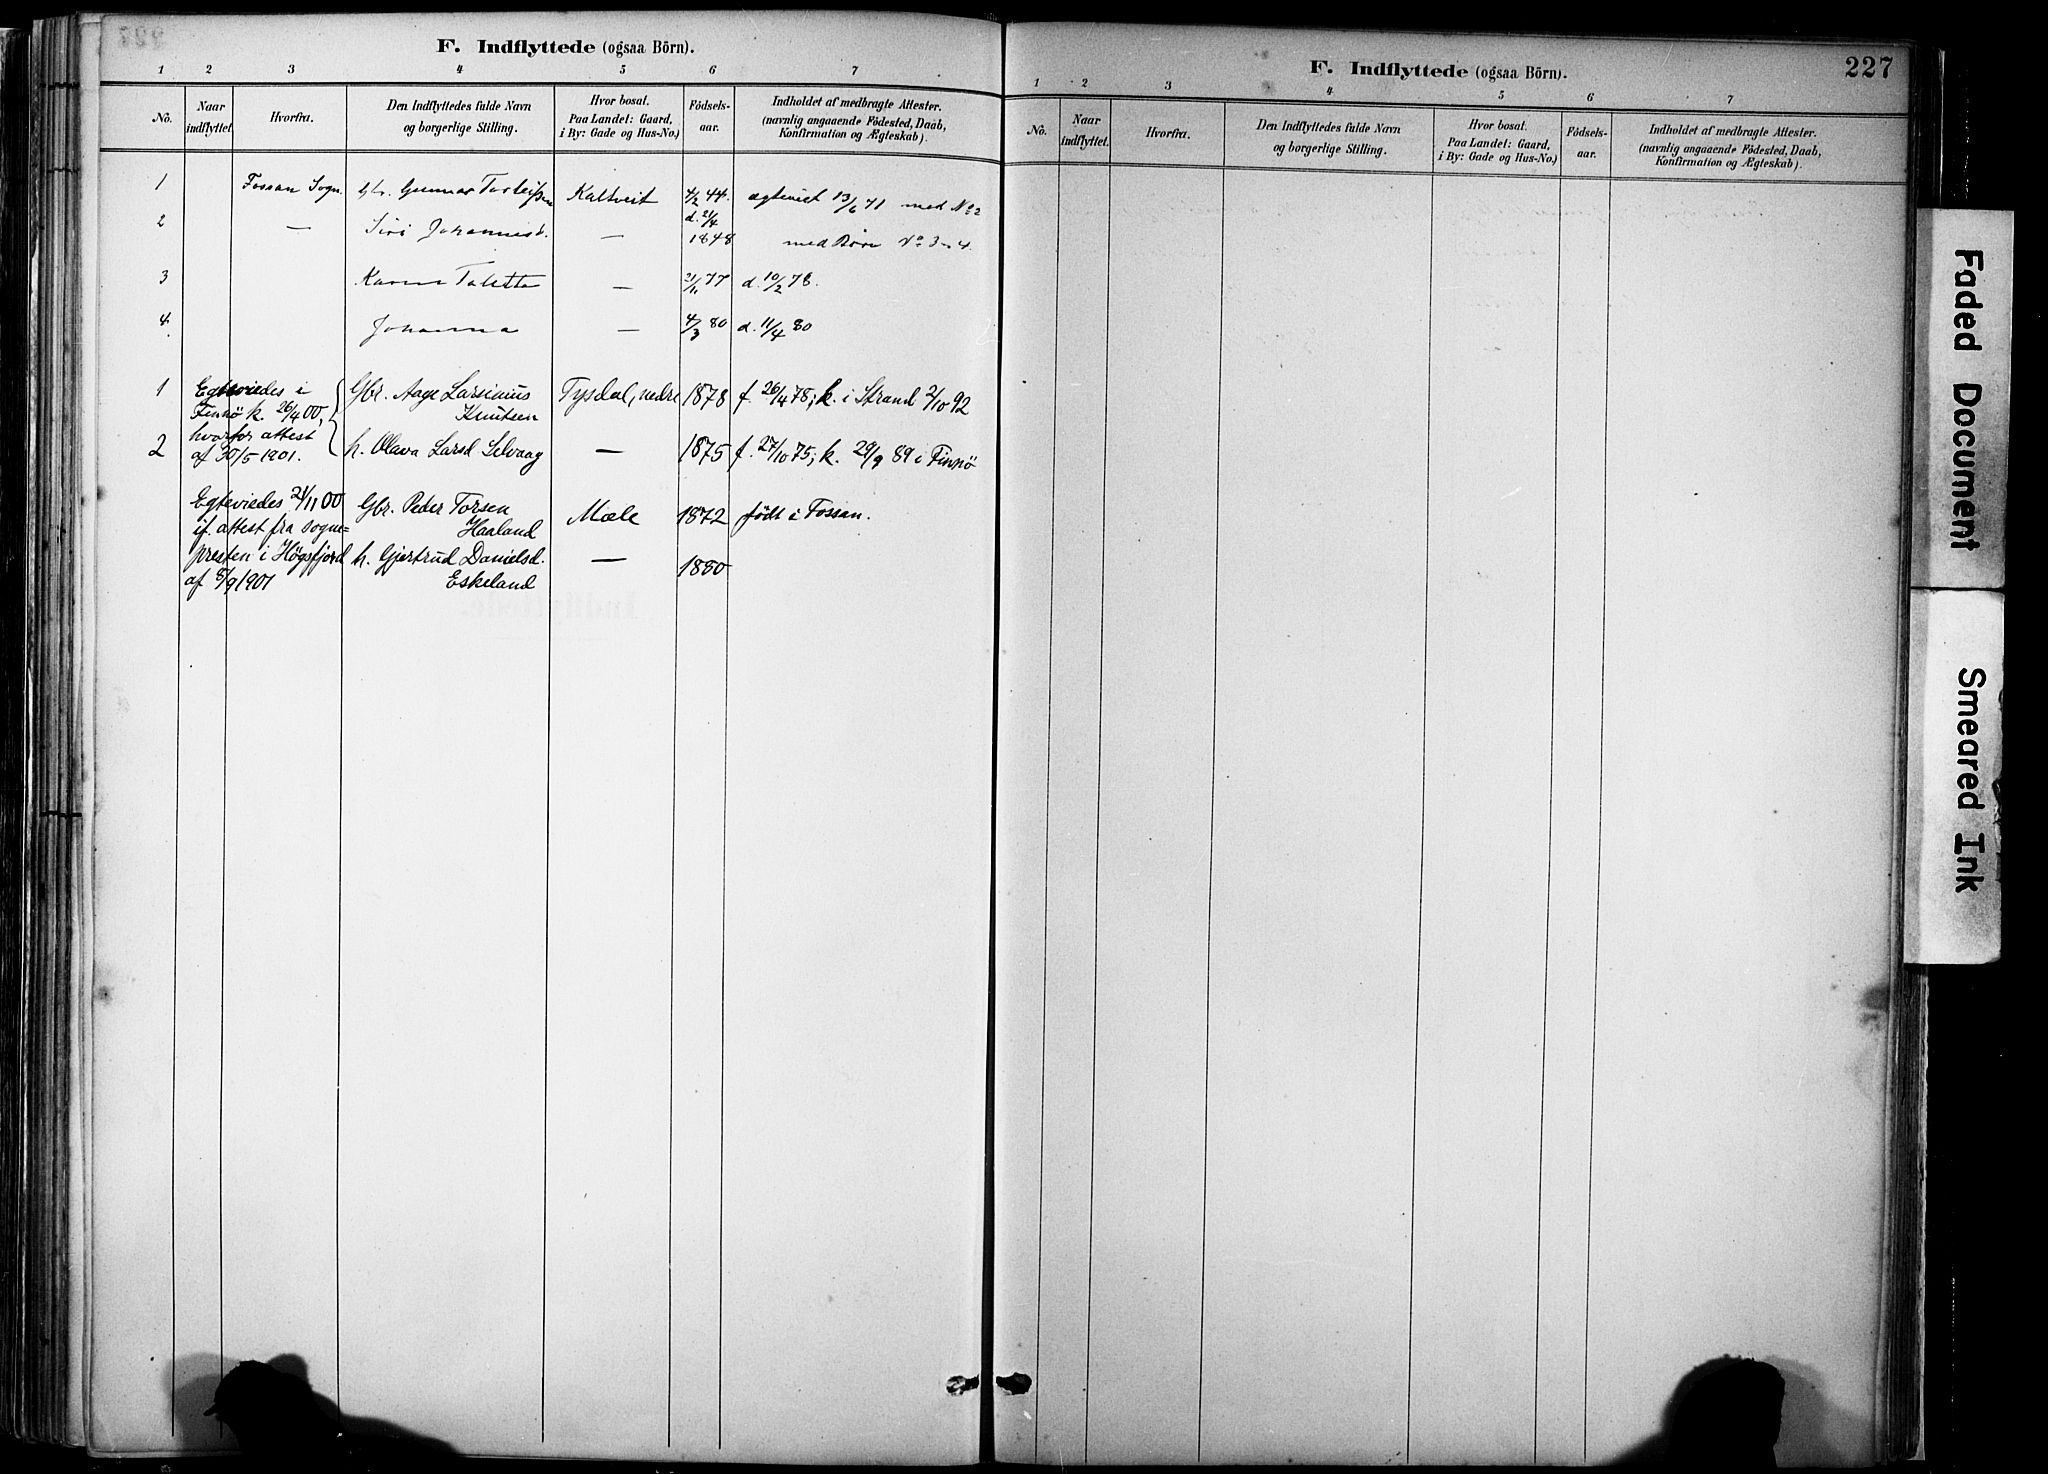 F. Indflyttede (ogsaa Börn).
1 2 3 4 5 6 7
No. Naar indflyttet. Hvorfra. Den Indflyttedes fulde Navn og borgerlige Stilling. Hvor bosat. Paa Landet: Gaard, i By: Gade og Hus-No.) Födsels-aar. Indholdet af medbragte Attester. (navnlig angaaende Födested, Daab, Konfirmation og Ægteskab).
1 Fossan Sogn. Gbr. Gunnar Torleifsen Kaltveit 4/2 44. ægteviet 13/6 71 med No 2
2 — Siri Johannesd. — d. 21/4 1848 med Börn No 3 - 4.
3 Karen Taletta — 21/11 77 d. 10/2 78.
4. Johanna — 4/3 80 d. 11/4 80
1 Egteviedes i Gbr. Aage Larsinius Tysdal, nedre 1878 f. 26/4 78; k. i Strand 2/10 92
Finnö k. 26/4 00, Knutsen
hvorfor attest
2 af 30/5 1901. h. Olava Larsd Selvaag — 1875 f. 27/10 75; k. 29/9 89 i Finnö
Egteviedes 21/11 00 Gbr. Peder Torsen Mæle 1872 født i Fossan.
if. attest fra sogne= Haaland
presten i Høgsfjord h. Gjertrud Danielsd. — 1880
af 5/9 1901 Eskeland
F. Indflyttede (ogsaa Börn).
227
1 2 3 4 5 6 7
No. Naar indflyttet. Hvorfra. Den Indflyttedes fulde Navn og borgerlige Stilling. Hvor bosat. Paa Landet: Gaard, i By: Gade og Hus-No.) Födsels-aar. Indholdet af medbragte Attester. (navnlig angaaende Födested, Daab, Konfirmation og Ægteskab).
Faded Document
Smeared Ink